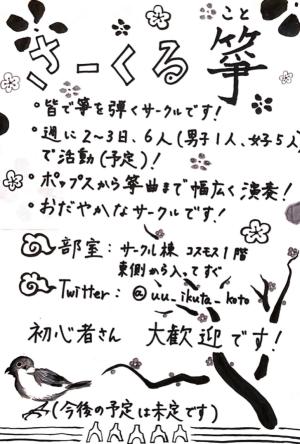 さーくる 箏 こと
・皆で箏を弾くサークルです!
・週に2〜3日、6人(男子1人、女子5人)
で活動(予定)!
・ポップスから箏曲まで幅広く演奏!
・おだやかなサークルです!
部室: サークル棟 コスモス1階
東側から入ってすぐ
Twitter: @uu_ikuta_koto
初心者さん 大歓迎です!
(今後の予定は未定です)